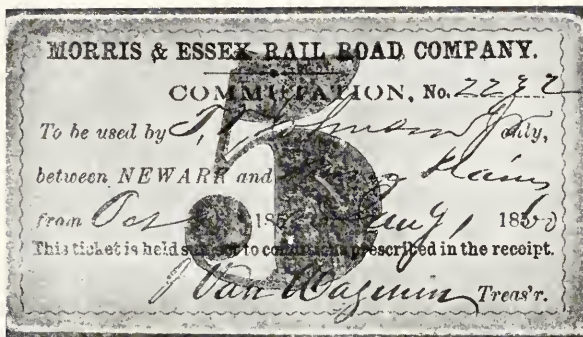 MORRIS & ESSEX RAIL ROAD COMPANY.
COMMUTATION, No. 2292
5
To be used by only,
between NEWARK and Plains
from Oct 185 185
This ticket is held subject to conditions prescribed in the receipt.
Van Wagenen Treas'r.